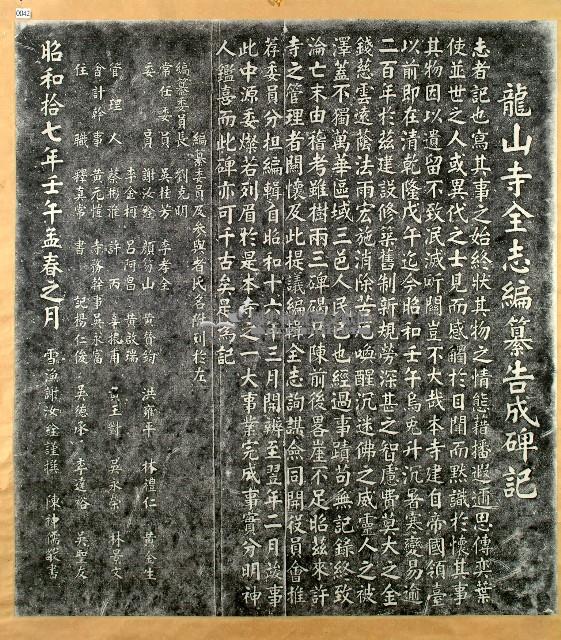 龍山寺全志編纂告成碑記
志者記也寫其事之始終狀其物之情態藉播遐邇思傳奕葉
使並世之人或異代之士見而感觸於目聞而默識於懷其事
其物因以遺留不致泯滅所關豈不大哉本寺建自帝國領臺
以前即在清乾隆戊午迄今昭和壬午烏兎升沉暑寒變易逾
二百年於茲建設修築舊制新規勞深甚之智慮費莫大之金
錢慈雲遠蔭法雨宏施消除苦厄喚醒沉迷佛之威靈人之被
澤蓋不獨萬華區域三邑人民已也經過事蹟苟無記錄終致
淪亡末由稽考雖樹兩三碑碣只陳前後畧歷不足昭茲來許
寺之管理者關懷及此提議編輯全志詢謀僉同開役員會推
荐委員分担編輯自昭和十六年三月開辦至翌年二月竣事
此中源委燦若列眉於是本寺之一大事業完成事實分明神
人鑑喜而此碑亦可千古矣是為記
編纂委員及參與者氏名附列於左
編纂委員長 劉克明
常任委員 吳桂芳 李孝全
委員 謝汝銓 顏笏山 黃贊鈞 洪雍平 林禮仁 黃金生
李金梅 呂阿昌 黃啟瑞
管理人 蔡彬淮 許丙 辜振甫 黃玉對 吳永榮 林景文
會計幹事 黃元愷 寺務幹事 吳永富
住職 釋真常 書記 楊仁俊 吳德承 李達裕 吳聖友
昭和拾七年壬午孟春之月 雪漁謝汝銓謹撰 陳神儒敬書
0042